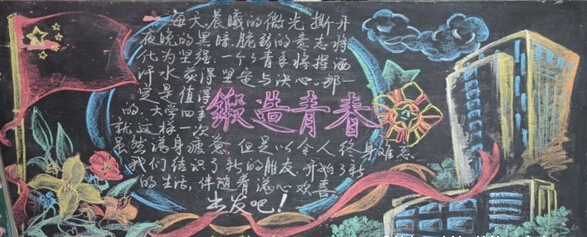 每天晨曦的微光,撕开
夜晚的黑暗,脆弱的意志将
化为坚强,一个个青年将挥洒
汗水,获得坚毅与决心。那一
定是值得
的,大学四年
就这样一次
锻造青春
虽然满身疲惫 但是以令人终身难忘
我们结识了新的朋友 开始了新
的生活,伴随着满心欢喜
出发吧!